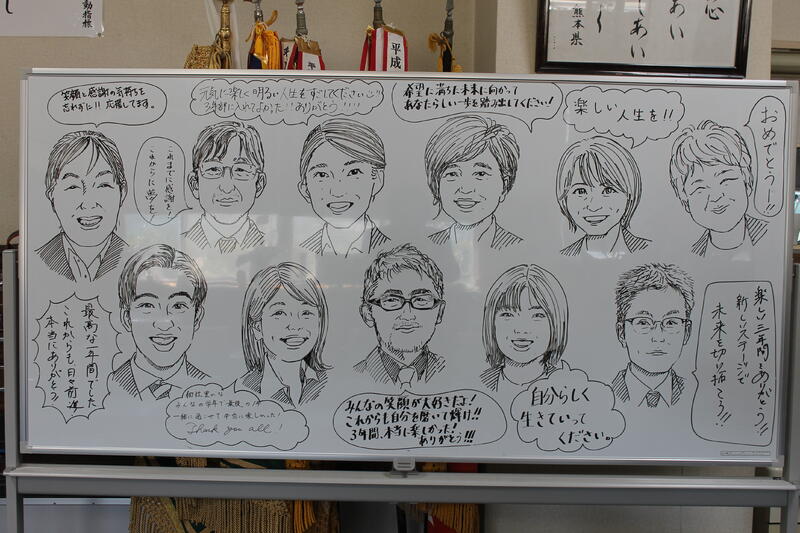 動指標
し
平成
熊本県
心
あい
しあい
く
笑顔と感謝の気持ちを
忘れずに!! 応援してます。
これまでに感謝を!
これからに夢を!
元気に楽しく明るい人生をすごしてください
3年部に入れてよかった!!ありがとう!!!!
希望に満ちた未来に向かって
あなたらしい一歩を踏み出してください!
楽しい
人生を!!
おめでとうー!!
最高な一年間でした
これからも日々前進
本当にありがとう!
みんなの学年で最後の1年
一緒に過ごせて本当に楽しかった!
Thank you all!
みんなの笑顔が大好きだよ!
これからも自分を磨いて輝け!!
3年間、本当に楽しかった!
ありがとう!!!
自分らしく
生きていって
ください。
楽しい三年間をありがとう!!
新しいステージで
未来を切り拓こう!!